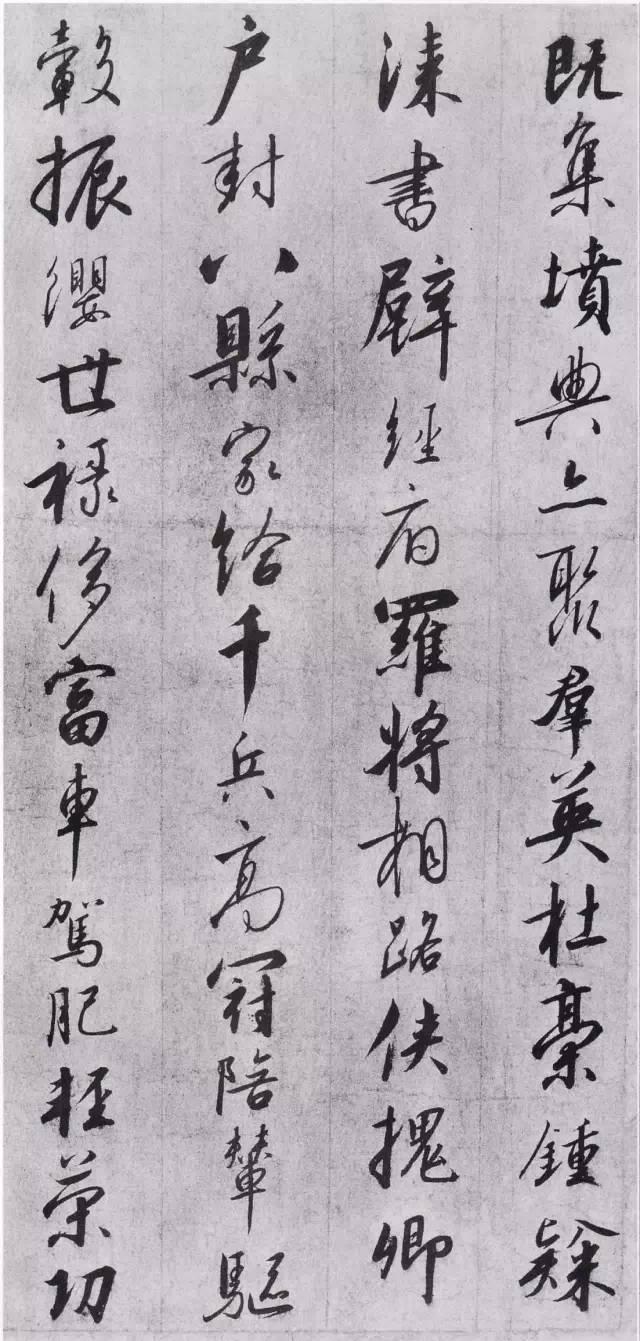 既集墳典亦聚羣英杜藁鍾隸
漆書壁經府羅將相路俠槐卿
户封八縣家給千兵高冠陪輦驅
轂振纓世祿侈富車駕肥輕策功